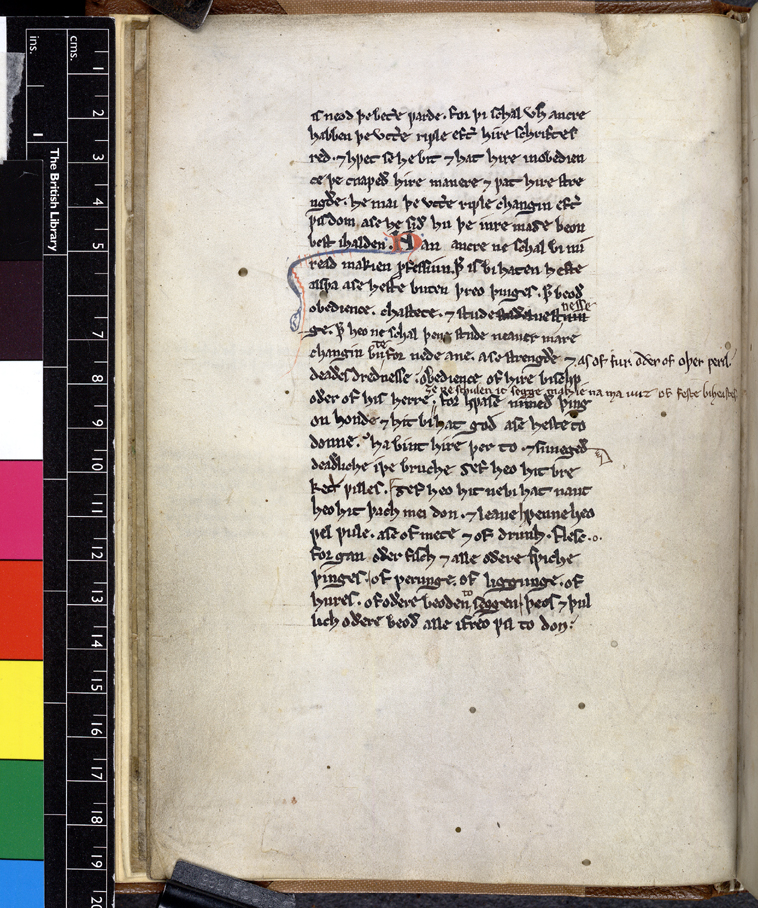 ins.
cms.
1
2
3
4
5
6
7
8
9
10
11
12
13
14
15
16
17
18
19
20
1
The British Library
is neod þe bet̃e ƿarde. for þi schal vh ancre
habben þe vtt̃e riƿle eft̃ hire schriftes
red. ⁊ hƿet se he bit ⁊ hat hire inobedien
ce þe cnaƿeð hire manere ⁊ ƿat hire stre
ngðe. he mai þe vtt̃e riƿle changin eft̃
ƿisdom. ase he sið hu þe inre maȝe beon
best ihalden. Nan ancre ne schal bi mi
read makien ꝓfessiun. ꝥ is bihaten heste
ase heste buten þreo þinges. ꝥ beoð
obedience. chastete. ⁊ stude
nesse
ge. ꝥ heo ne schal þene stude neauer mare
changin bute for nede ane. ase strengðe ⁊ as of fur oðer of oþer peril.
deaðes drednesse. obedience of hire bischp
oðer of his herre. for hƿase nimeð þing
on honde ⁊ hit bihat god ase heste to
donne. ha bint hire þer to. ⁊ sunegeð
deadliche iþe bruche ȝef heo hit bre
keð ƿilles. ȝef heo hit ne bihat naut
heo hit þach mei don. ⁊ leaue hƿenne heo
ƿel ƿule. ase of mete ⁊ of drunh. flesc.
forgan oðer fisch ⁊ alle oðere sƿiche
þinges. of ƿerunge. of liggunge. of
hures. of oðere beoden to seggen. þeos ⁊ þul
lich oðere beoð alle ifreo ƿil to don.